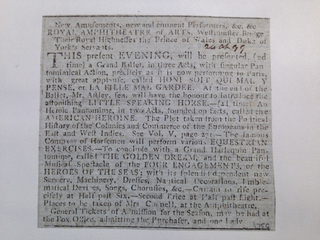 New Amusements, new and eminent Performers, &c. &c.
ROYAL AMPHITHEATRE of ARTS, Westminster Bridge
Their Royal Highnesses the Prince of Wales and Duke of
York's Servants.
THIS present EVENING, will be presented, (2d
time) a Grand Ballet, in three Acts, with singular Pan-
tomimical Action, precisely as it is now performing in Paris,
with great applause, called HONI SOIT QUI MAL Y
PENSE, or LA FILLE MAL GARDEE. At the end of the
Ballet, Mr. Astley, sen. will have the honour to introduce the
astonishing LITTLE SPEAKING HORSE.—(21 time) An
Heroic Pantomime, in two Acts, founded on facts, called the
AMERICAN HEROINE. The Plot taken from the Political
History of the Colonies and Commerce of the Europeans in the
East and West Indies. See Vol. V, page 271.—The famous
Company of Horsemen will perform various EQUESTRIAN
EXERCISES.—To conclude with a Grand Harlequin Pan-
tomime, called THE GOLDEN DREAM, and the beautiful
Musical Spectacle of the FOUR ENGAGEMENTS, or the
HEROES OF THE SEAS; with its splendid dependent new
Scenery, Machinery, Dresses, Nautical Decorations, Emble-
matical Devices, Songs, Chorusses, &c.—Curtain to rise pre-
cisely at Half past Six.—Second Price at Half past Eight.—
Places to be taken of Mrs. Connell, at the Amphitheatre.
General Tickets of Admission for the Season, may be had at
the Box Office, admitting the Purchaser, and one Lady.